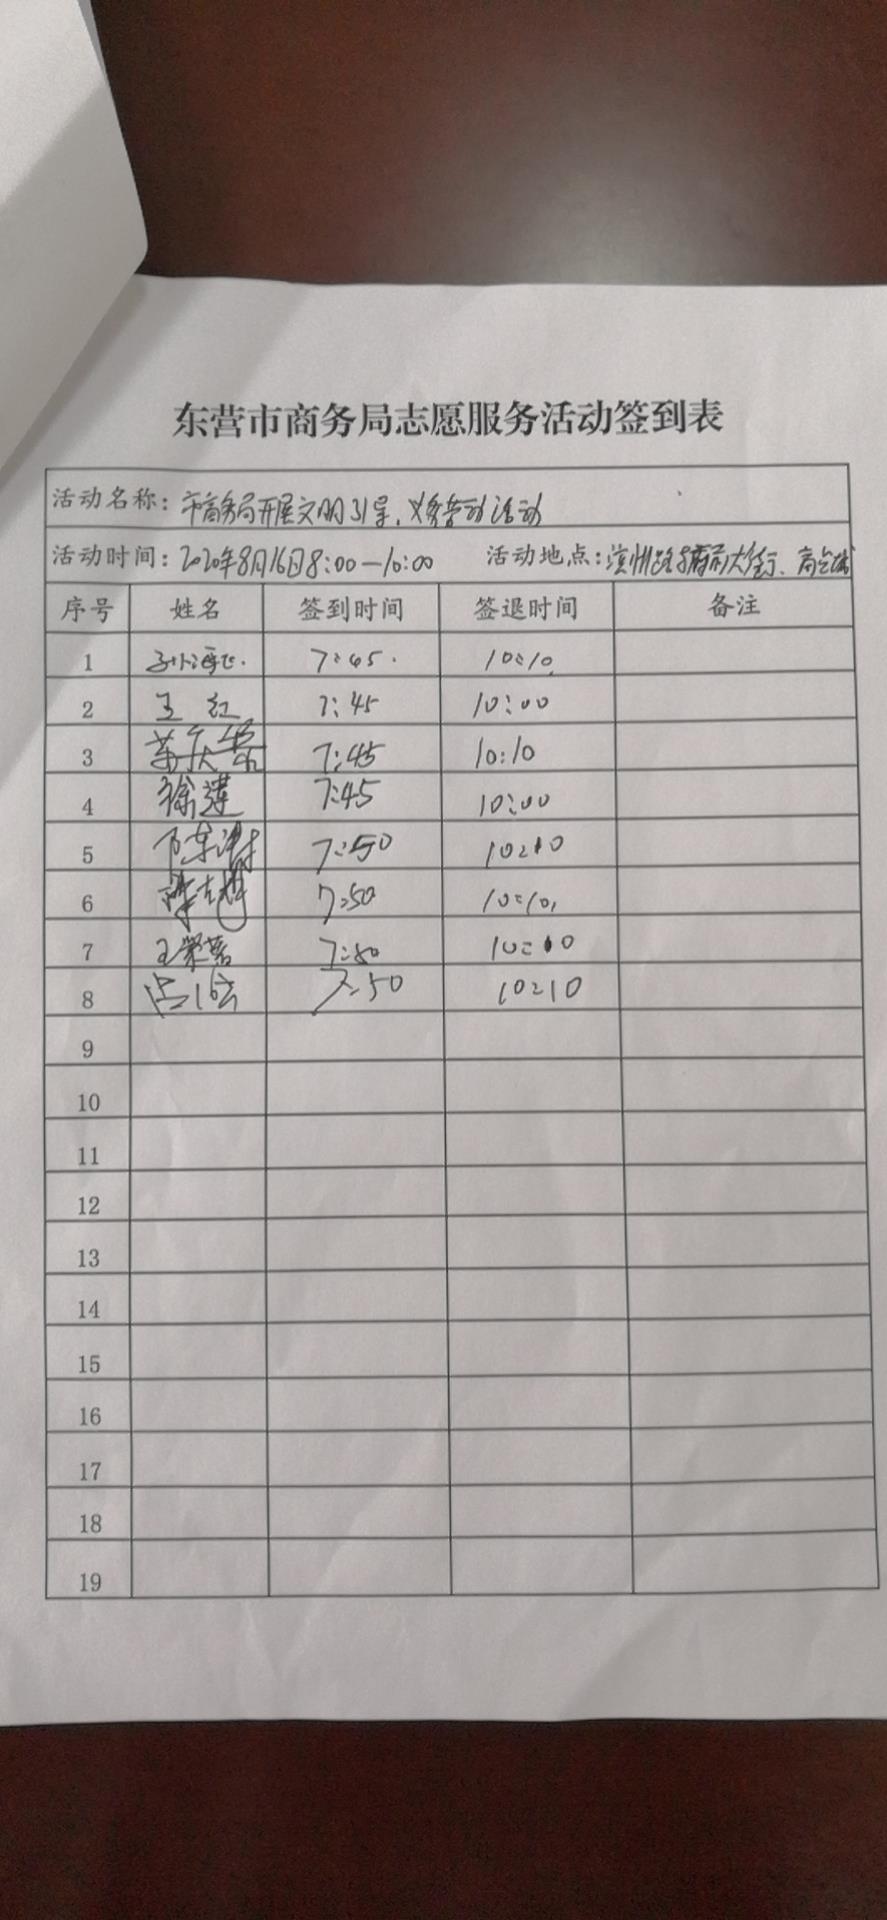 东营市商务局志愿服务活动签到表
活动名称：市商务局开展文明引导、义务劳动活动
活动时间：2020年8月16日8:00—10:00 活动地点：滨州路与府前大街、商会城
序号 姓名 签到时间 签退时间 备注
1 7:45 10:10
2 王红 7:45 10:00
3 7:45 10:10
4 徐莲 7:45 10:00
5 7:50 10:10
6 7:50 10:10
7 7:50 10:10
8 7:50 10:10
9
10
11
12
13
14
15
16
17
18
19